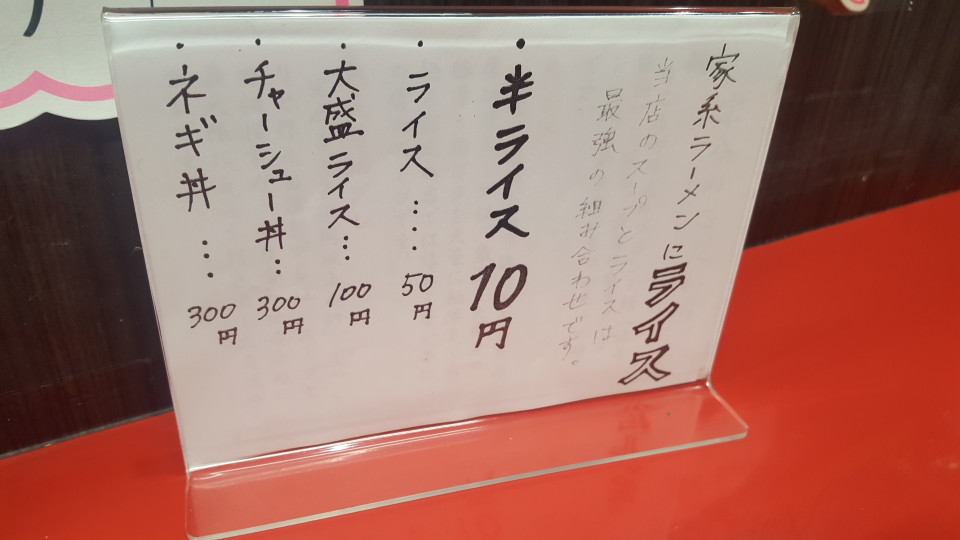 家系ラーメンにライス
当店のスープとライスは
最強の組み合わせです。
・半ライス 10円
・ライス・・・・ 50円
・大盛ライス・・・ 100円
・チャーシュー丼・・ 300円
・ネギ丼・・・ 300円